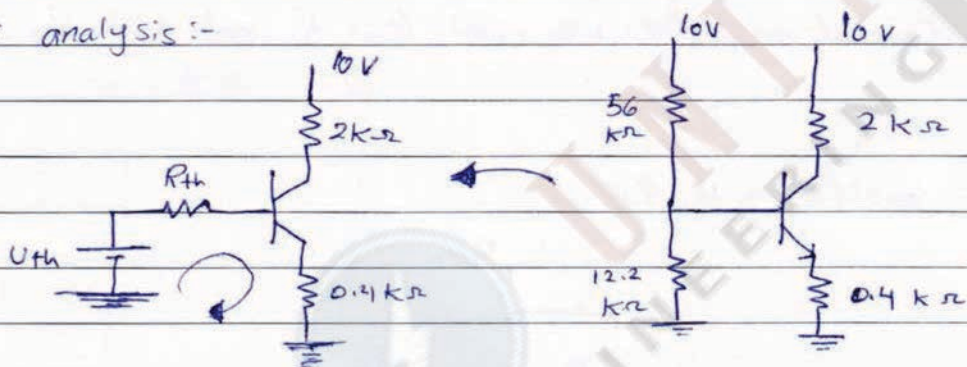 analysis :-
10 V
2 kΩ
Rth
Uth
0.4 kΩ
10V
10 V
56
kΩ
2 kΩ
12.2
kΩ
0.4 kΩ
UNI
NEERING